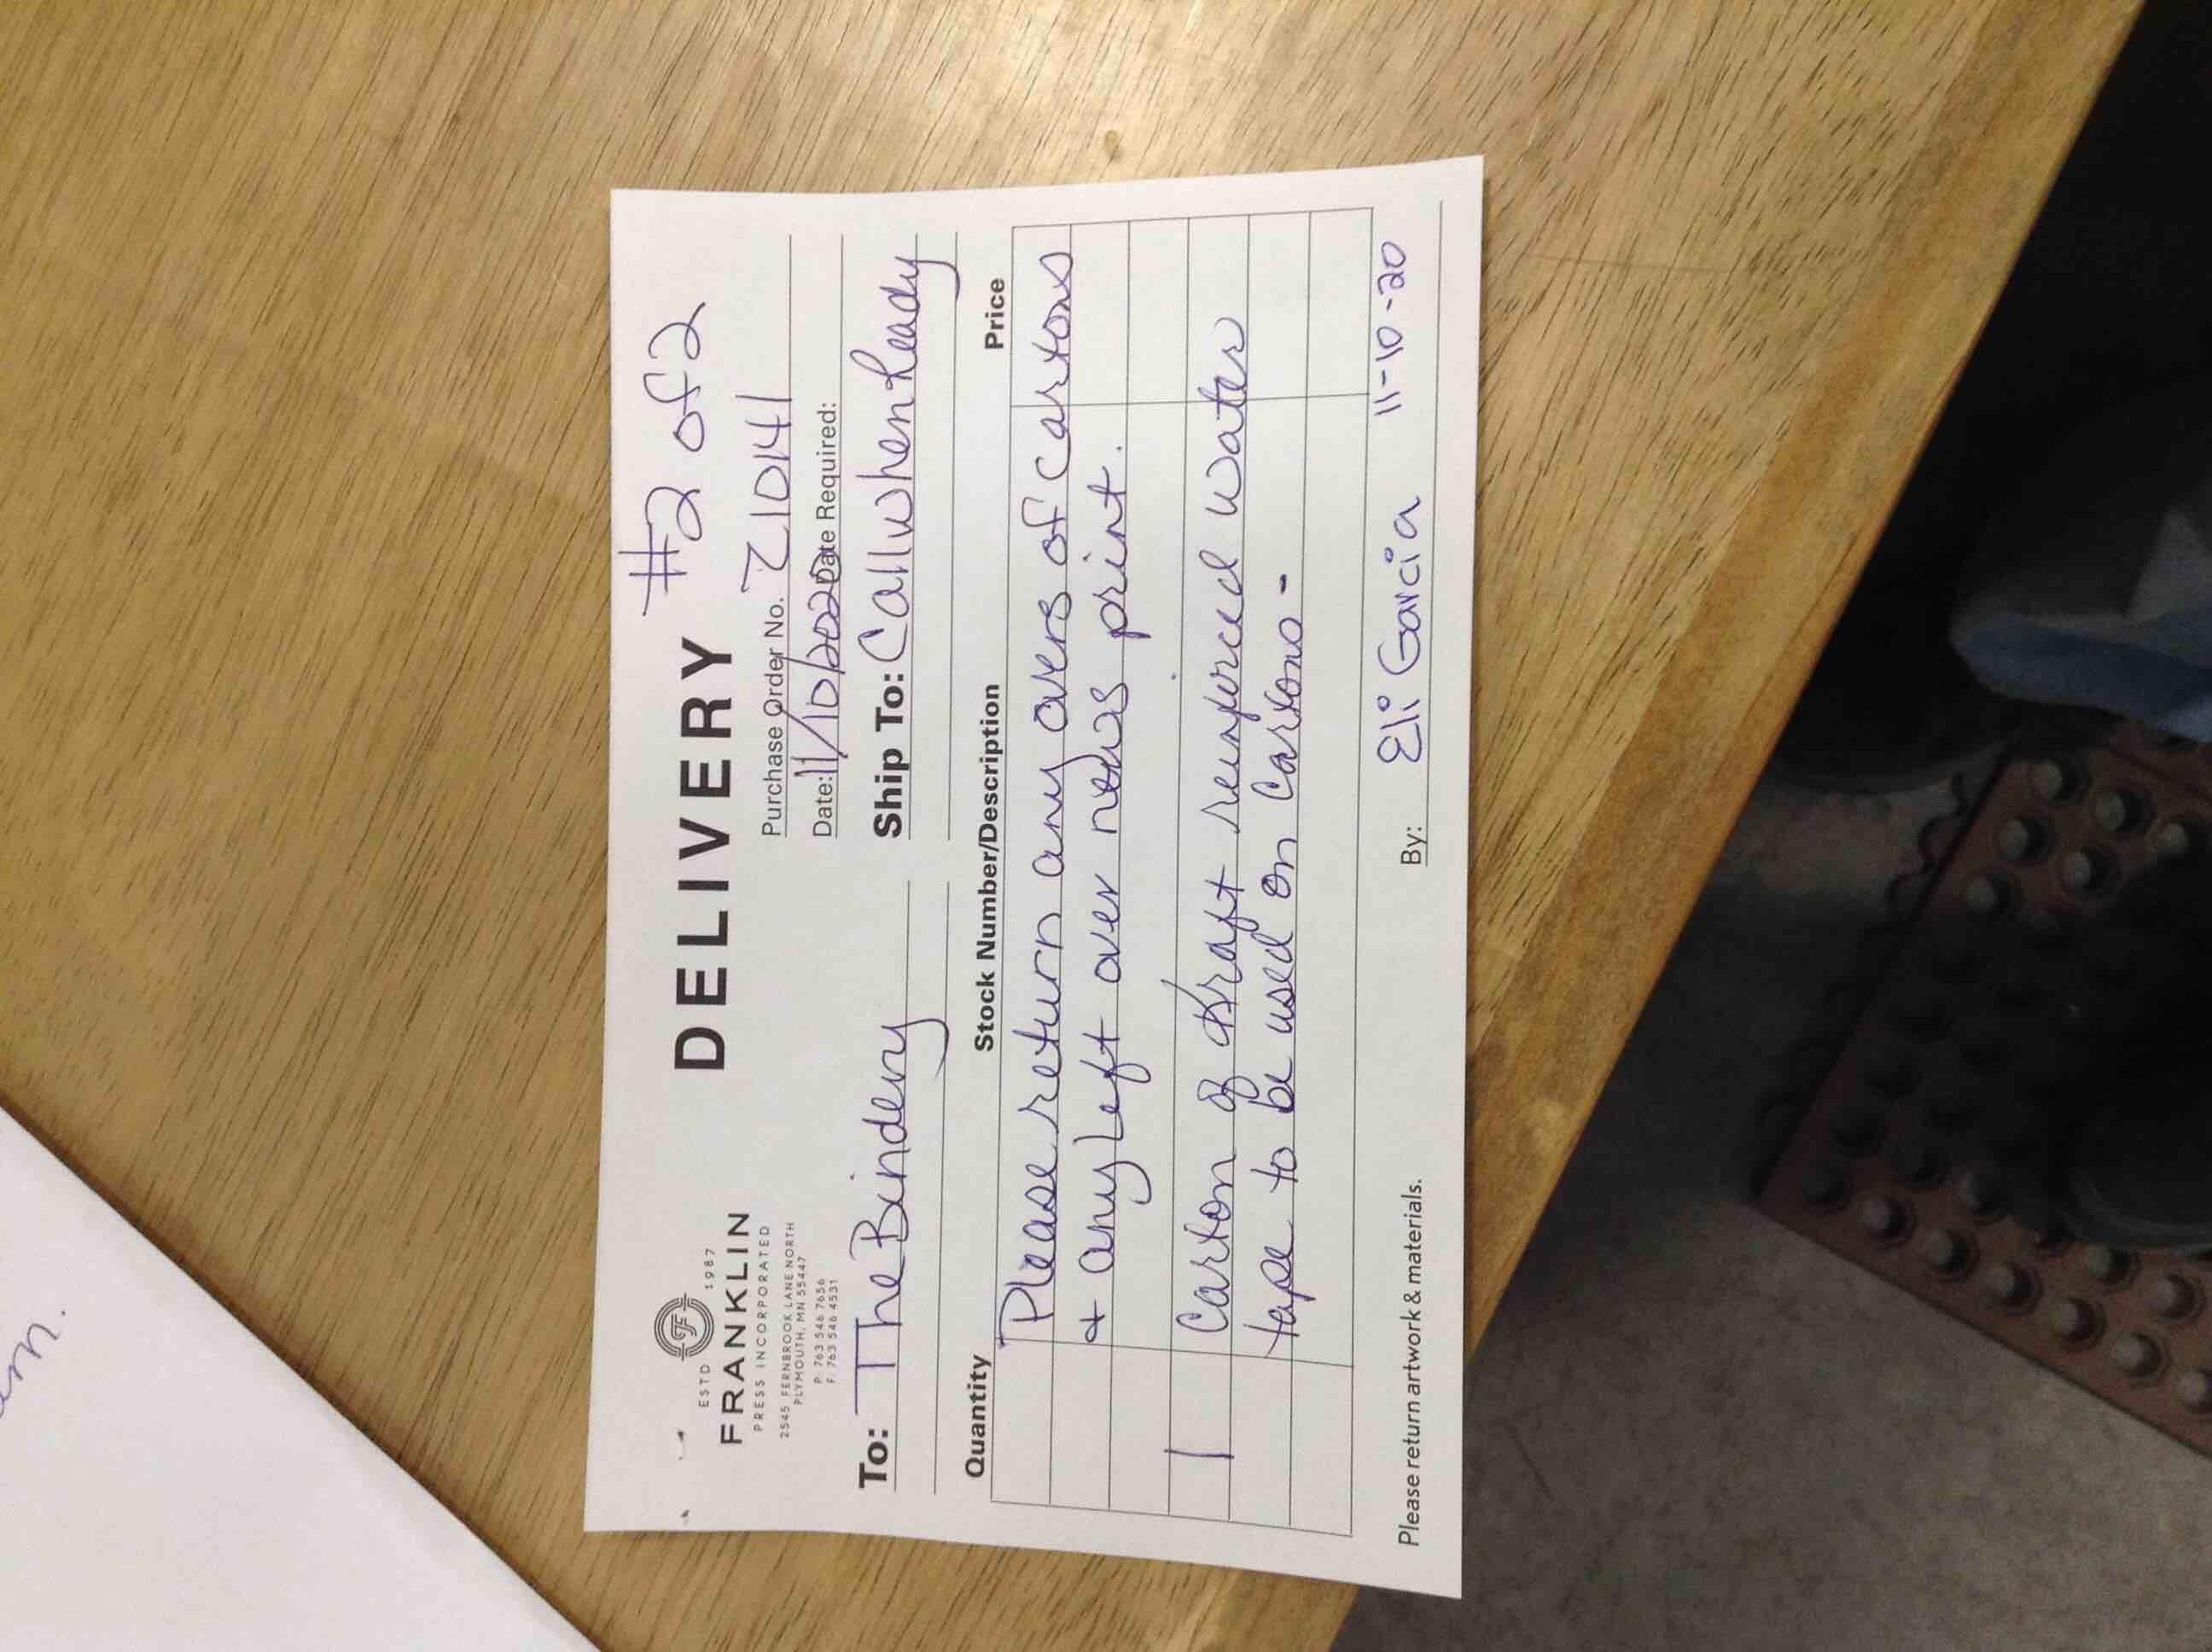 #2 of 2
DELIVERY
ESTD 1987
FRANKLIN
PRESS INCORPORATED
2545 FERNBROOK LANE NORTH
PLYMOUTH, MN 55447
P: 763 546 7656
F: 763 546 4531
Purchase Order No. 71014
Date: 11/10/2020 Date Required:
To: The Bindery
Ship To: Call when Ready
Quantity Stock Number/Description Price
Please return any overs of cartons
+ any left over news print.
1 Carton of Kraft reinforced water
tape to be used on cartons -
Please return artwork & materials.
By: Eli Garcia 11-10-20